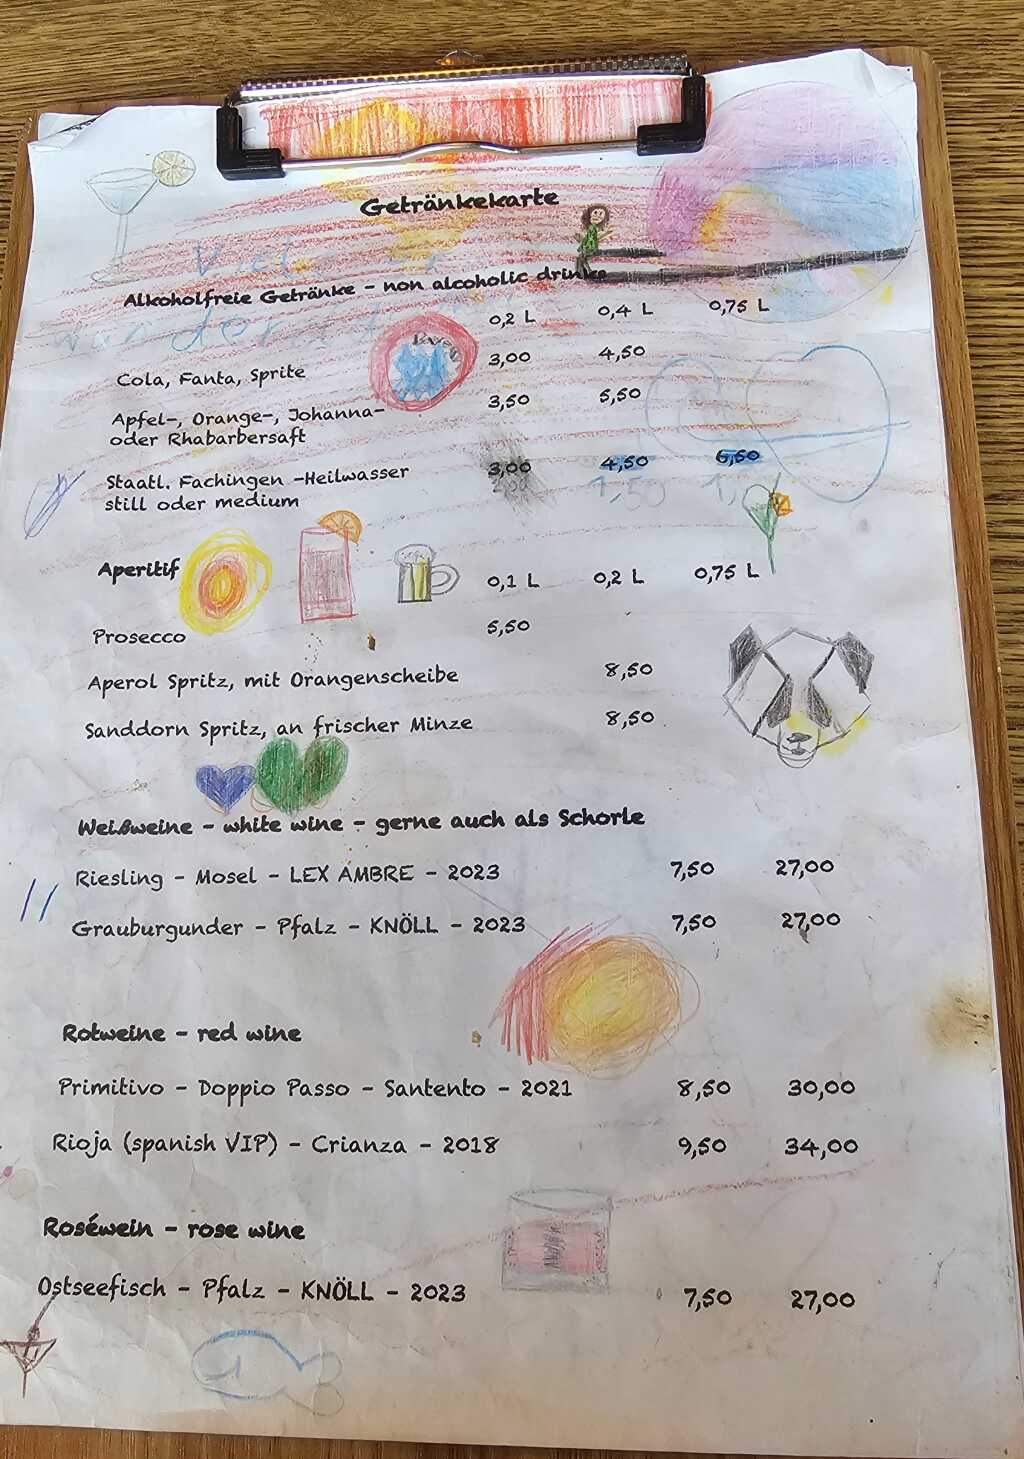 Getränkekarte
Alkoholfreie Getränke - non alcoholic drinks
0,2 L 0,4 L 0,75 L
Cola, Fanta, Sprite 3,00 4,50
Apfel-, Orange-, Johanna- 3,50 5,50
oder Rhabarbersaft
Staatl. Fachingen -Heilwasser 3,00 4,50 6,50
still oder medium 1,50
Aperitif 0,1 L 0,2 L 0,75 L
Prosecco 5,50
Aperol Spritz, mit Orangenscheibe 8,50
Sanddorn Spritz, an frischer Minze 8,50
Weißweine - white wine - gerne auch als Schorle
Riesling - Mosel - LEX AMBRE - 2023 7,50 27,00
Grauburgunder - Pfalz - KNÖLL - 2023 7,50 27,00
Rotweine - red wine
Primitivo - Doppio Passo - Santento - 2021 8,50 30,00
Rioja (spanish VIP) - Crianza - 2018 9,50 34,00
Roséwein - rose wine
Ostseefisch - Pfalz - KNÖLL - 2023 7,50 27,00